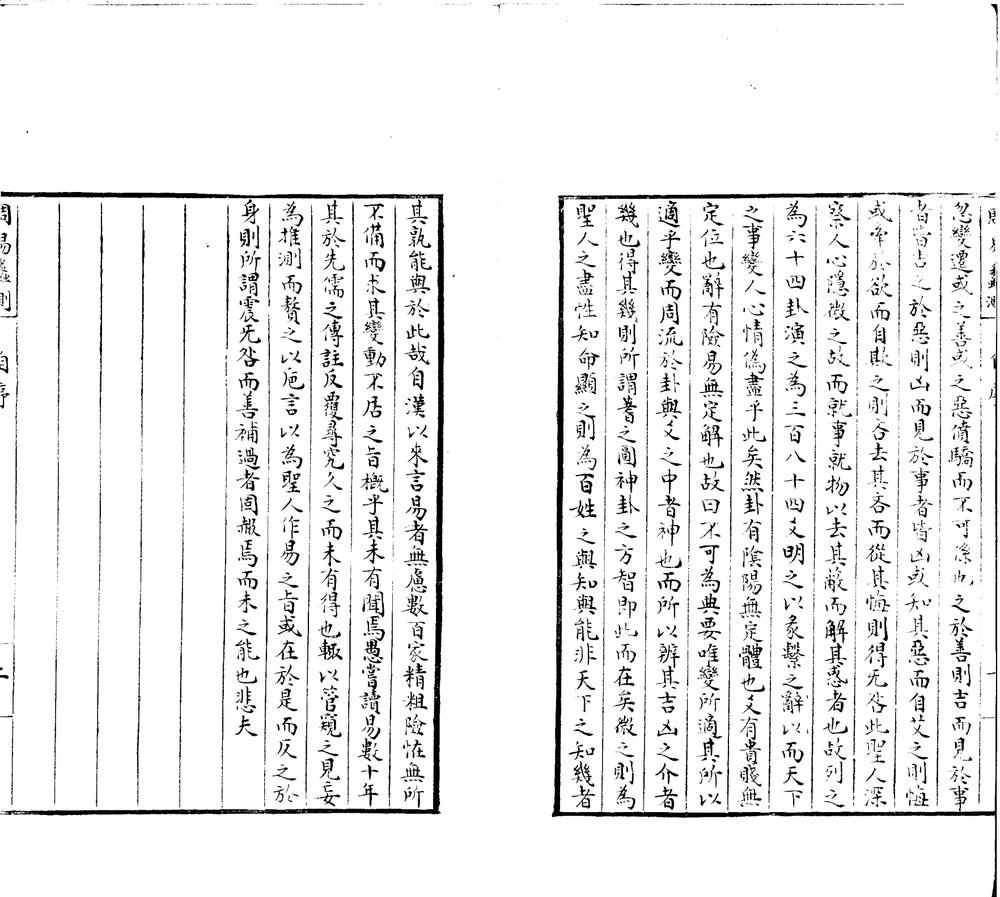 忽變遷或之善或之惡僨驕而不可係也之於善則吉而見於事
者皆吉之於惡則凶而見於事者皆凶或知其惡而自艾之則悔
或牽於欲而自欺之則吝去其吝而從其悔則得无咎此聖人深
察人心隱微之故而就事就物以去其蔽而解其惑者也故列之
為六十四卦演之為三百八十四爻明之以彖繫之辭以而天下
之事變人心情偽盡乎此矣然卦有陰陽無定體也爻有貴賤無
定位也辭有險易無定解也故曰不可為典要唯變所適其所以
適乎變而周流於卦與爻之中者神也而所以辨其吉凶之介者
幾也得其幾則所謂蓍之圓神卦之方智即此而在矣微之則為
聖人之盡性知命顯之則為百姓之與知與能非天下之知幾者
其孰能與於此哉自漢以來言易者無慮數百家精粗險恠無所
不備而求其變動不居之旨概乎其未有聞焉愚嘗讀易數十年
其於先儒之傳註反覆尋究久之而未有得也輒以管窺之見妄
為推測而贅之以巵言以為聖人作易之旨或在於是而仄之於
身則所謂震无咎而善補過者固赧焉而未之能也悲夫
周易蠡測
自序
二